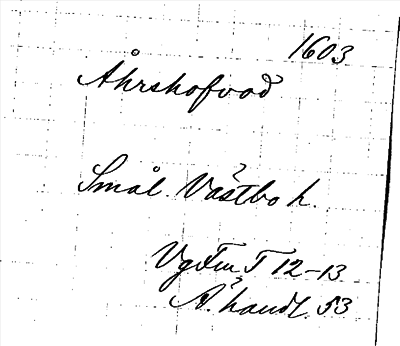 1603
Åhrshofvod
Smål. Västbo h.
Vg Fm T 12-13
Ä. handl. 53